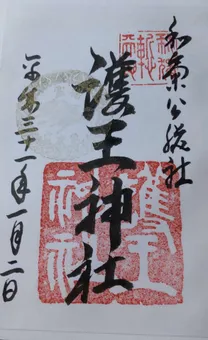 和気公総社
護王神社
平成三十一年一月二日
護王神社